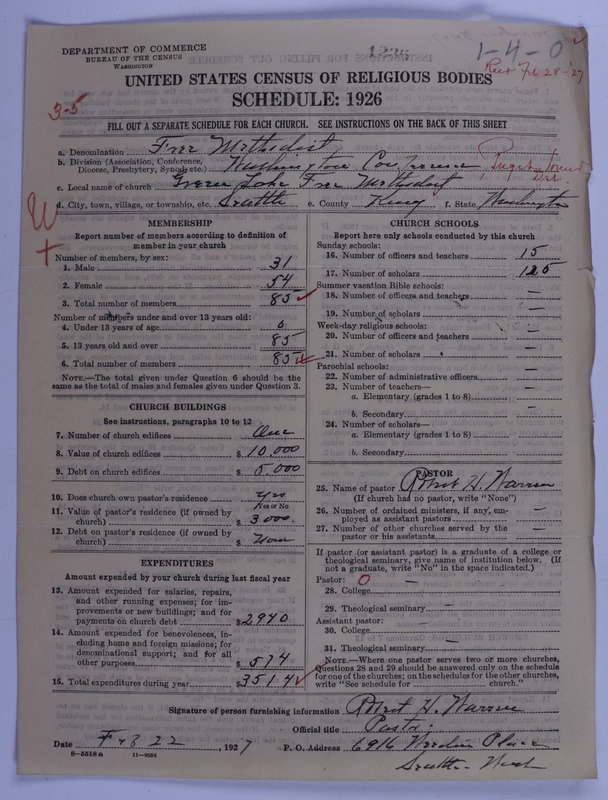 1236
1-4-0
DEPARTMENT OF COMMERCE
BUREAU OF THE CENSUS
WASHINGTON
Rec Feb 28-27
UNITED STATES CENSUS OF RELIGIOUS BODIES
SCHEDULE: 1926
3-5
FILL OUT A SEPARATE SCHEDULE FOR EACH CHURCH. SEE INSTRUCTIONS ON THE BACK OF THIS SHEET
a. Denomination Free Methodist
b. Division (Association, Conference, Diocese, Presbytery, Synod, etc.) Washington Conference Puget Sound
c. Local name of church Green Lake Free Methodist
d. City, town, village, or township, etc. Seattle e. County King f. State Washington
MEMBERSHIP
Report number of members according to definition of
member in your church
Number of members, by sex:
1. Male 31
2. Female 54
3. Total number of members 85
Number of members under and over 13 years old:
4. Under 13 years of age 0
5. 13 years old and over 85
6. Total number of members 85
NOTE.—The total given under Question 6 should be
the same as the total of males and females given under Question 3.
CHURCH BUILDINGS
See instructions, paragraphs 10 to 12
7. Number of church edifices One
8. Value of church edifices $ 10,000
9. Debt on church edifices $ 5,000
10. Does church own pastor's residence yes
Yes or No
11. Value of pastor's residence (if owned by
church) $ 3000
12. Debt on pastor's residence (if owned by
church) $ None
EXPENDITURES
Amount expended by your church during last fiscal year
13. Amount expended for salaries, repairs,
and other running expenses; for im-
provements or new buildings; and for
payments on church debt $ 2940
14. Amount expended for benevolences, in-
cluding home and foreign missions; for
denominational support; and for all
other purposes $ 574
15. Total expenditures during year $ 3514
CHURCH SCHOOLS
Report here only schools conducted by this church
Sunday schools:
16. Number of officers and teachers 15
17. Number of scholars 125
Summer vacation Bible schools:
18. Number of officers and teachers —
19. Number of scholars —
Week-day religious schools:
20. Number of officers and teachers —
21. Number of scholars —
Parochial schools:
22. Number of administrative officers —
23. Number of teachers—
a. Elementary (grades 1 to 8) —
b. Secondary —
24. Number of scholars—
a. Elementary (grades 1 to 8) —
b. Secondary —
PASTOR
25. Name of pastor Robert H. Warren
(If church has no pastor, write "None")
26. Number of ordained ministers, if any, em-
ployed as assistant pastors —
27. Number of other churches served by the
pastor or his assistants —
If pastor (or assistant pastor) is a graduate of a college or
theological seminary, give name of institution below. (If
not a graduate, write "No" in the space indicated.)
Pastor: 0
28. College —
29. Theological seminary —
Assistant pastor:
30. College —
31. Theological seminary —
NOTE.—Where one pastor serves two or more churches,
Questions 28 and 29 should be answered only on the schedule
for one of the churches; on the schedules for the other churches,
write "See schedule for church."
Signature of person furnishing information Robert H. Warren
Official title Pastor.
Date Feb 22, 1927 P. O. Address 6916 Place
8-5518a 11-9024
Seattle Wash